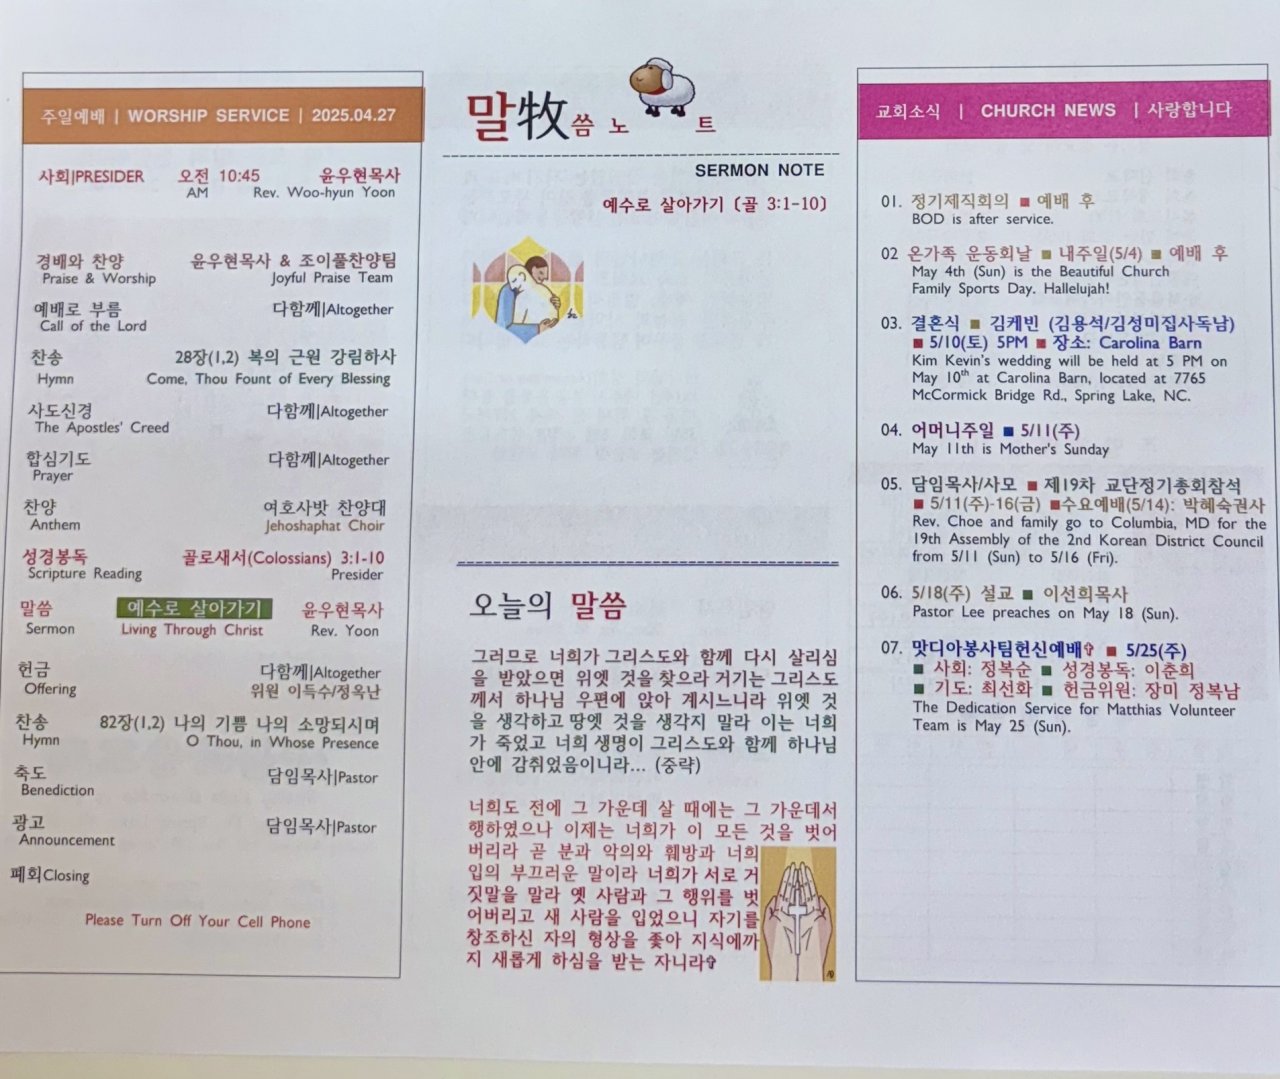 주일예배 | WORSHIP SERVICE | 2025.04.27
사회|PRESIDER 오전 10:45 윤우현목사
AM Rev. Woo-hyun Yoon
경배와 찬양 윤우현목사 & 조이풀찬양팀
Praise & Worship Joyful Praise Team
예배로 부름 다함께|Altogether
Call of the Lord
찬송 28장(1,2) 복의 근원 강림하사
Hymn Come, Thou Fount of Every Blessing
사도신경 다함께|Altogether
The Apostles' Creed
합심기도 다함께|Altogether
Prayer
찬양 여호사밧 찬양대
Anthem Jehoshaphat Choir
성경봉독 골로새서(Colossians) 3:1-10
Scripture Reading Presider
말씀 예수로 살아가기 윤우현목사
Sermon Living Through Christ Rev. Yoon
헌금 다함께|Altogether
Offering 위원 이득수/정옥난
찬송 82장(1,2) 나의 기쁨 나의 소망되시며
Hymn O Thou, in Whose Presence
축도 담임목사|Pastor
Benediction
광고 담임목사|Pastor
Announcement
폐회Closing
Please Turn Off Your Cell Phone
말牧씀 노트
SERMON NOTE
예수로 살아가기 (골 3:1-10)
오늘의 말씀
그러므로 너희가 그리스도와 함께 다시 살리심
을 받았으면 위엣 것을 찾으라 거기는 그리스도
께서 하나님 우편에 앉아 계시느니라 위엣 것
을 생각하고 땅엣 것을 생각지 말라 이는 너희
가 죽었고 너희 생명이 그리스도와 함께 하나님
안에 감취었음이니라... (중략)
너희도 전에 그 가운데 살 때에는 그 가운데서
행하였으나 이제는 너희가 이 모든 것을 벗어
버리라 곧 분과 악의와 훼방과 너희
입의 부끄러운 말이라 너희가 서로 거
짓말을 말라 옛 사람과 그 행위를 벗
어버리고 새 사람을 입었으니 자기를
창조하신 자의 형상을 좇아 지식에까
지 새롭게 하심을 받는 자니라✞
교회소식 | CHURCH NEWS | 사랑합니다
01. 정기제직회의 ■ 예배 후
BOD is after service.
02 온가족 운동회날 ■ 내주일(5/4) ■ 예배 후
May 4th (Sun) is the Beautiful Church
Family Sports Day. Hallelujah!
03. 결혼식 ■ 김케빈 (김용석/김성미집사독남)
■ 5/10(토) 5PM ■ 장소: Carolina Barn
Kim Kevin's wedding will be held at 5 PM on
May 10th at Carolina Barn, located at 7765
McCormick Bridge Rd., Spring Lake, NC.
04. 어머니주일 ■ 5/11(주)
May 11th is Mother's Sunday
05. 담임목사/사모 ■ 제19차 교단정기총회참석
■ 5/11(주)-16(금) ■수요예배(5/14): 박혜숙권사
Rev. Choe and family go to Columbia, MD for the
19th Assembly of the 2nd Korean District Council
from 5/11 (Sun) to 5/16 (Fri).
06. 5/18(주) 설교 ■ 이선희목사
Pastor Lee preaches on May 18 (Sun).
07. 맛디아봉사팀헌신예배✞ ■ 5/25(주)
■ 사회: 정복순 ■ 성경봉독: 이춘희
■ 기도: 최선화 ■ 헌금위원: 장미 정복남
The Dedication Service for Matthias Volunteer
Team is May 25 (Sun).